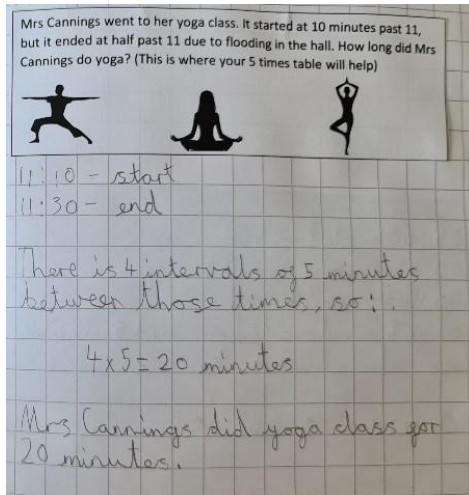 Mrs Cannings went to her yoga class. It started at 10 minutes past 11,
but it ended at half past 11 due to flooding in the hall. How long did Mrs
Cannings do yoga? (This is where your 5 times table will help)
11:10 - start
11:30 - end
There is 4 intervals of 5 minutes
between those times, so:
4x5=20 minutes
Mrs Cannings did yoga class for
20 minutes.